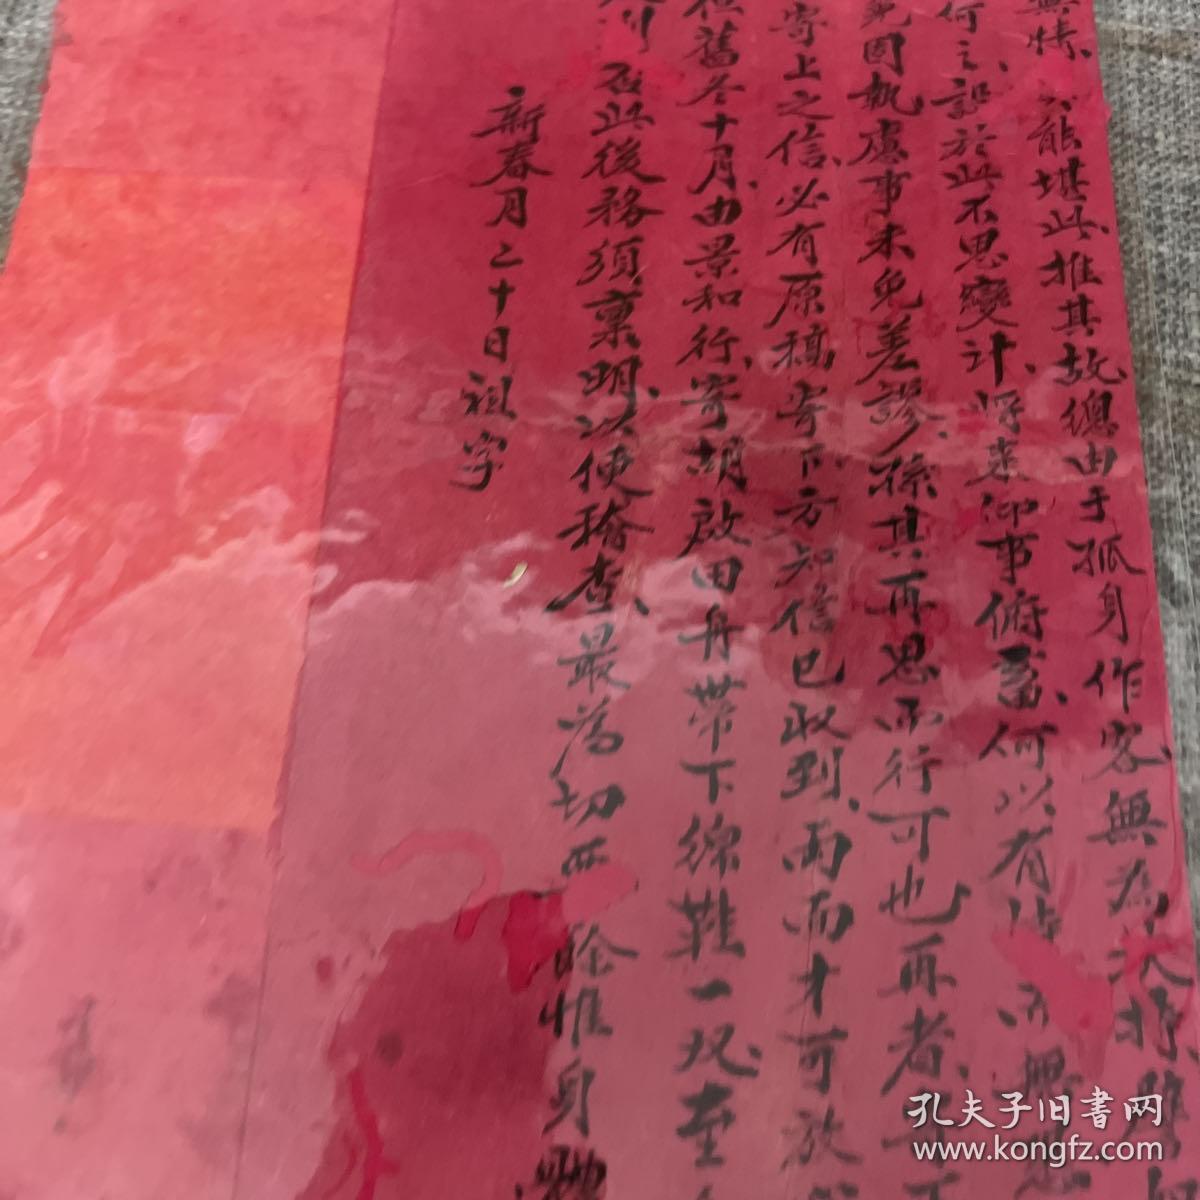 無情、能堪此、推其故、總由于孤身作客、無為
何之、設於此不思變計、將來仰事俯畜、何以有
免固執、慮事未免差謬、孫其再思而行可也、再者、
寄上之信、必有原稿、寄下方知信已收到、而才可放
舊冬十月、由景和行、寄胡啟田舟帶下綿鞋一双、至
否、此後務須稟明、以便稽查、最為切要、餘惟身
新春月二十日祖字
孔夫子旧书网
www.kongfz.com